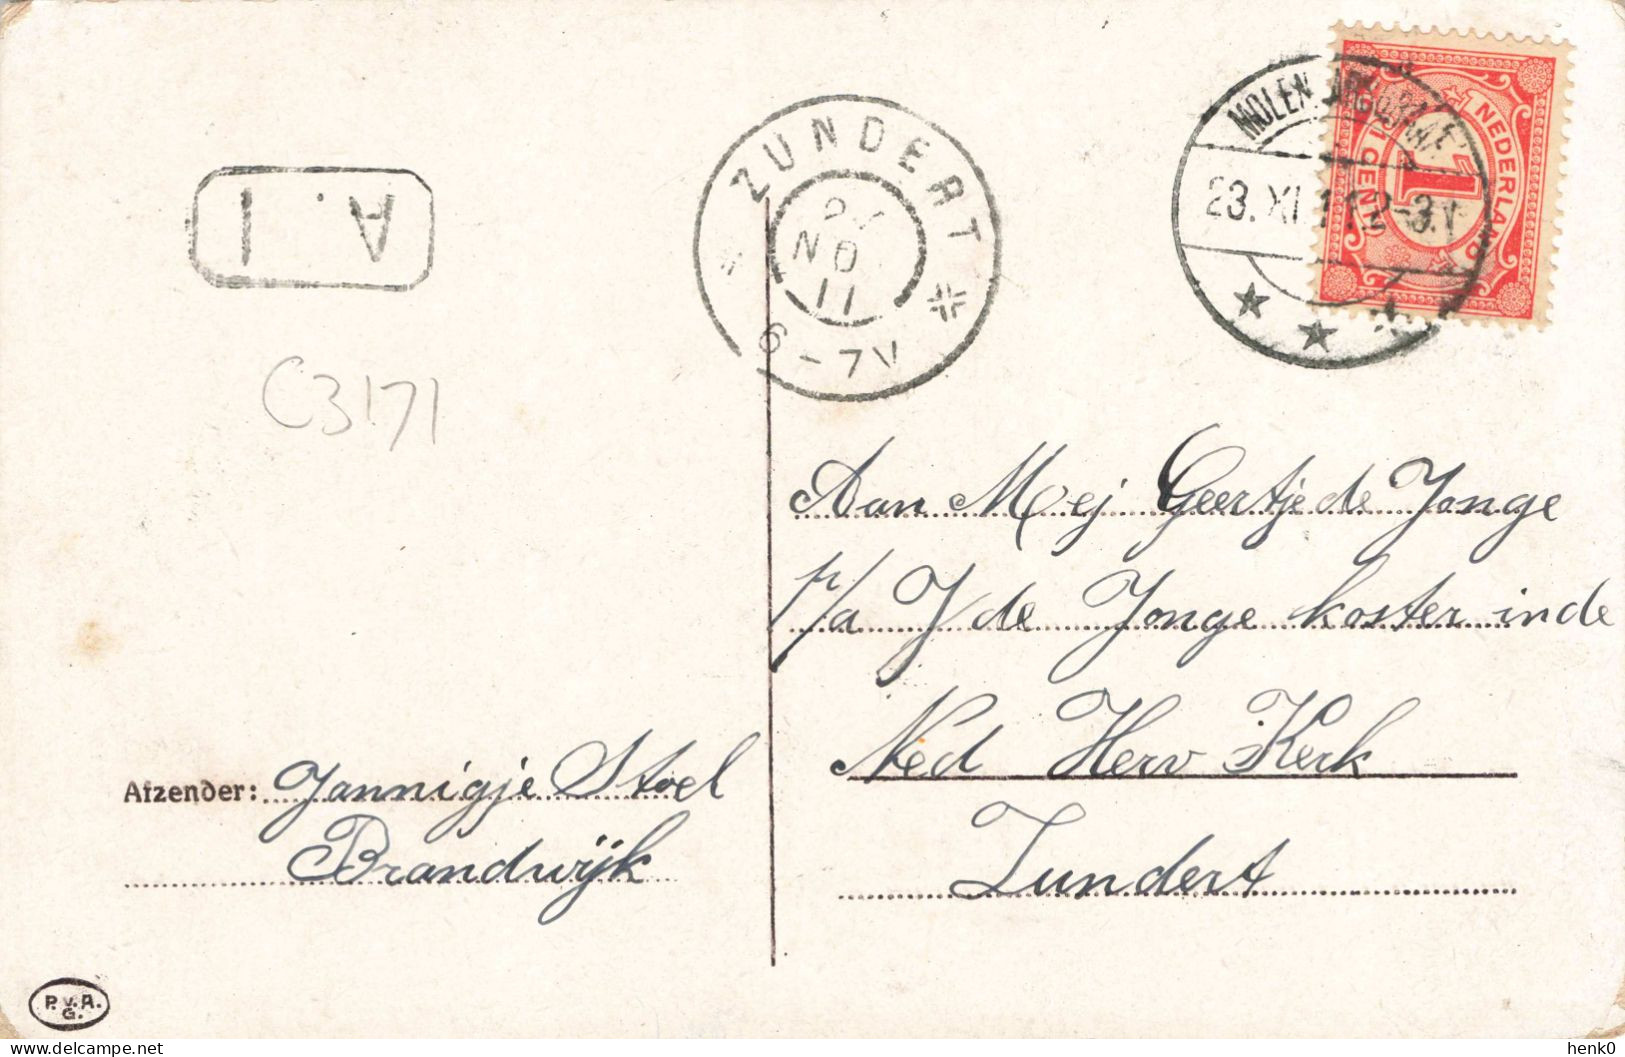 ZUNDERT
NO
11
6-7V
MOLEN
23.XI.11.2-3.V
NEDERLAND
1
1 CENT
A. I
C3171
Aan Mej Geertje de Jonge
p/a J de Jonge koster in de
Ned Herv Kerk
Zundert
Afzender: Jannigje Stoel
Brandwijk
P.v.A.
G.
delcampe.net
henk0